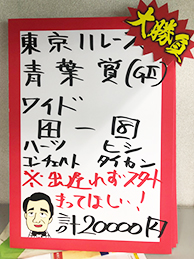 大勝負
東京11レース
青葉賞(GⅡ)
ワイド
田 ー 図
ハーツ ヒシ
コンチェルト タイカン
※出遅れずスタート
きってほしい!
計20000円